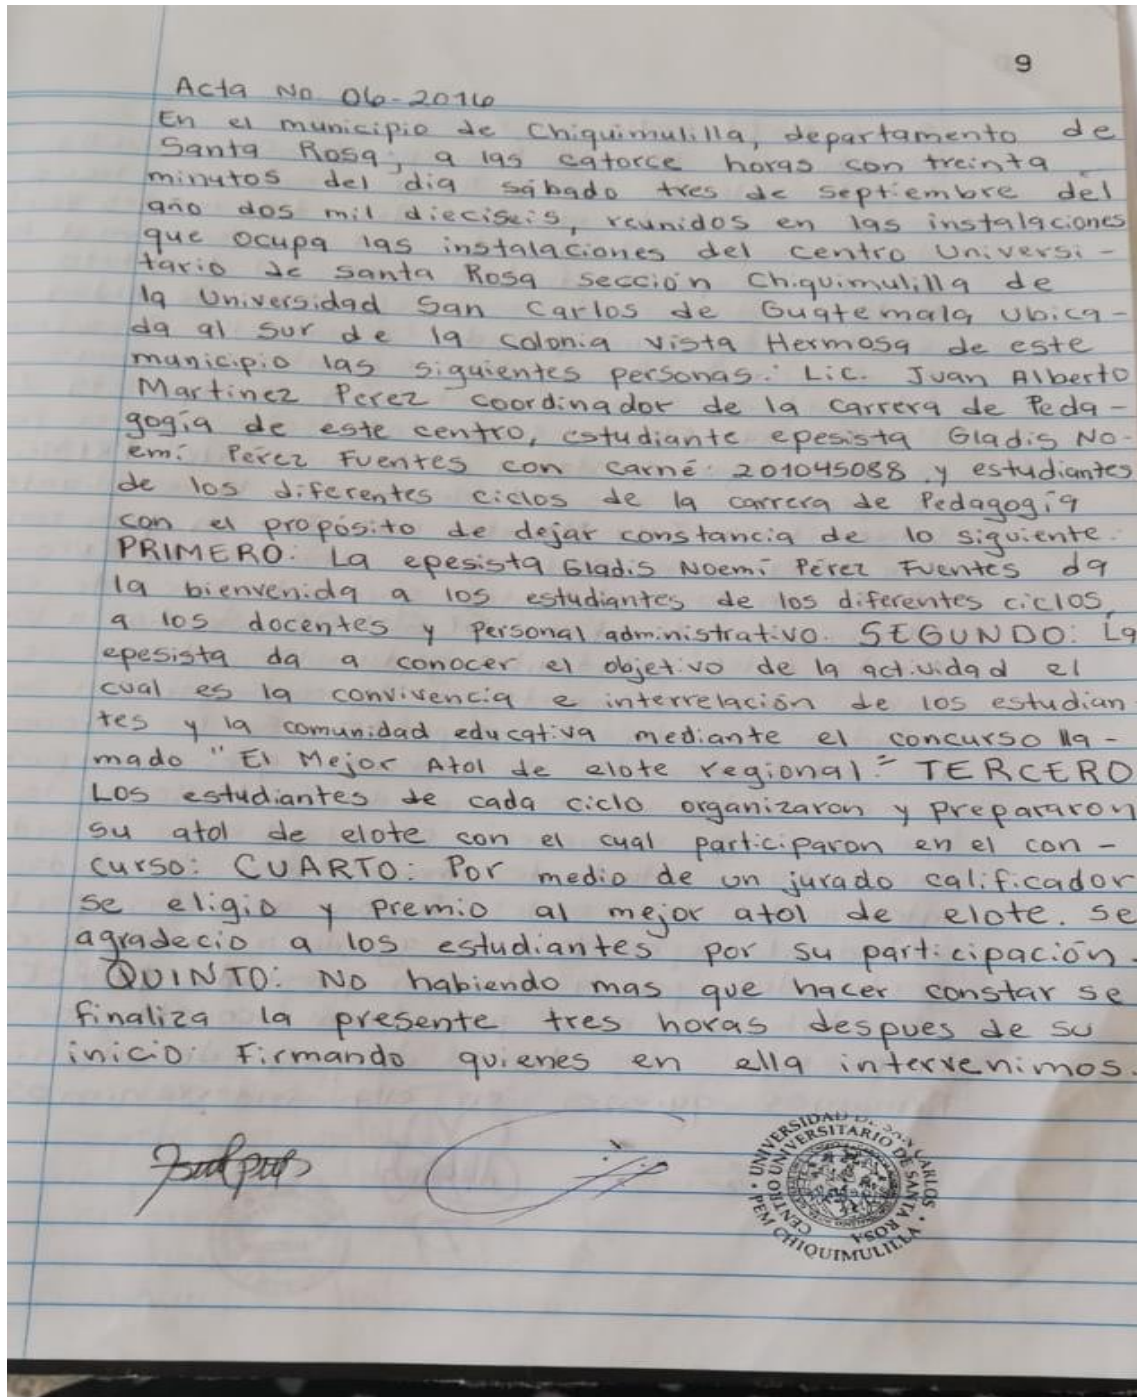 9
Acta No 06-2016
En el municipio de Chiquimulilla, departamento de
Santa Rosa, a las catorce horas con treinta
minutos del dia sábado tres de septiembre del
año dos mil dieciseis, reunidos en las instalaciones
que ocupa las instalaciones del centro Universi-
tario de Santa Rosa sección Chiquimulilla de
la Universidad San Carlos de Guatemala ubica-
da al sur de la colonia vista Hermosa de este
municipio las siguientes personas: Lic. Juan Alberto
Martinez Perez coordinador de la carrera de Peda-
gogía de este centro, estudiante epesista Gladis No-
emí Pérez Fuentes con carné: 201045088, y estudiantes
de los diferentes ciclos de la carrera de Pedagogía
con el propósito de dejar constancia de lo siguiente:
PRIMERO: La epesista Gladis Noemí Pérez Fuentes da
la bienvenida a los estudiantes de los diferentes ciclos,
a los docentes y personal administrativo. SEGUNDO: La
epesista da a conocer el objetivo de la actividad el
cual es la convivencia e interrelación de los estudian
tes y la comunidad educativa mediante el concurso lla-
mado "El Mejor Atol de elote regional." TERCERO
Los estudiantes de cada ciclo organizaron y prepararon
su atol de elote con el cual participaron en el con-
curso: CUARTO: Por medio de un jurado calificador
se eligio y premio al mejor atol de elote. se
agradecio a los estudiantes por su participación.
QUINTO: No habiendo mas que hacer constar se
finaliza la presente tres horas despues de su
inicio: Firmando quienes en ella intervenimos.
UNIVERSIDAD DE SAN CARLOS
CENTRO UNIVERSITARIO DE SANTA ROSA
PEM CHIQUIMULILLA